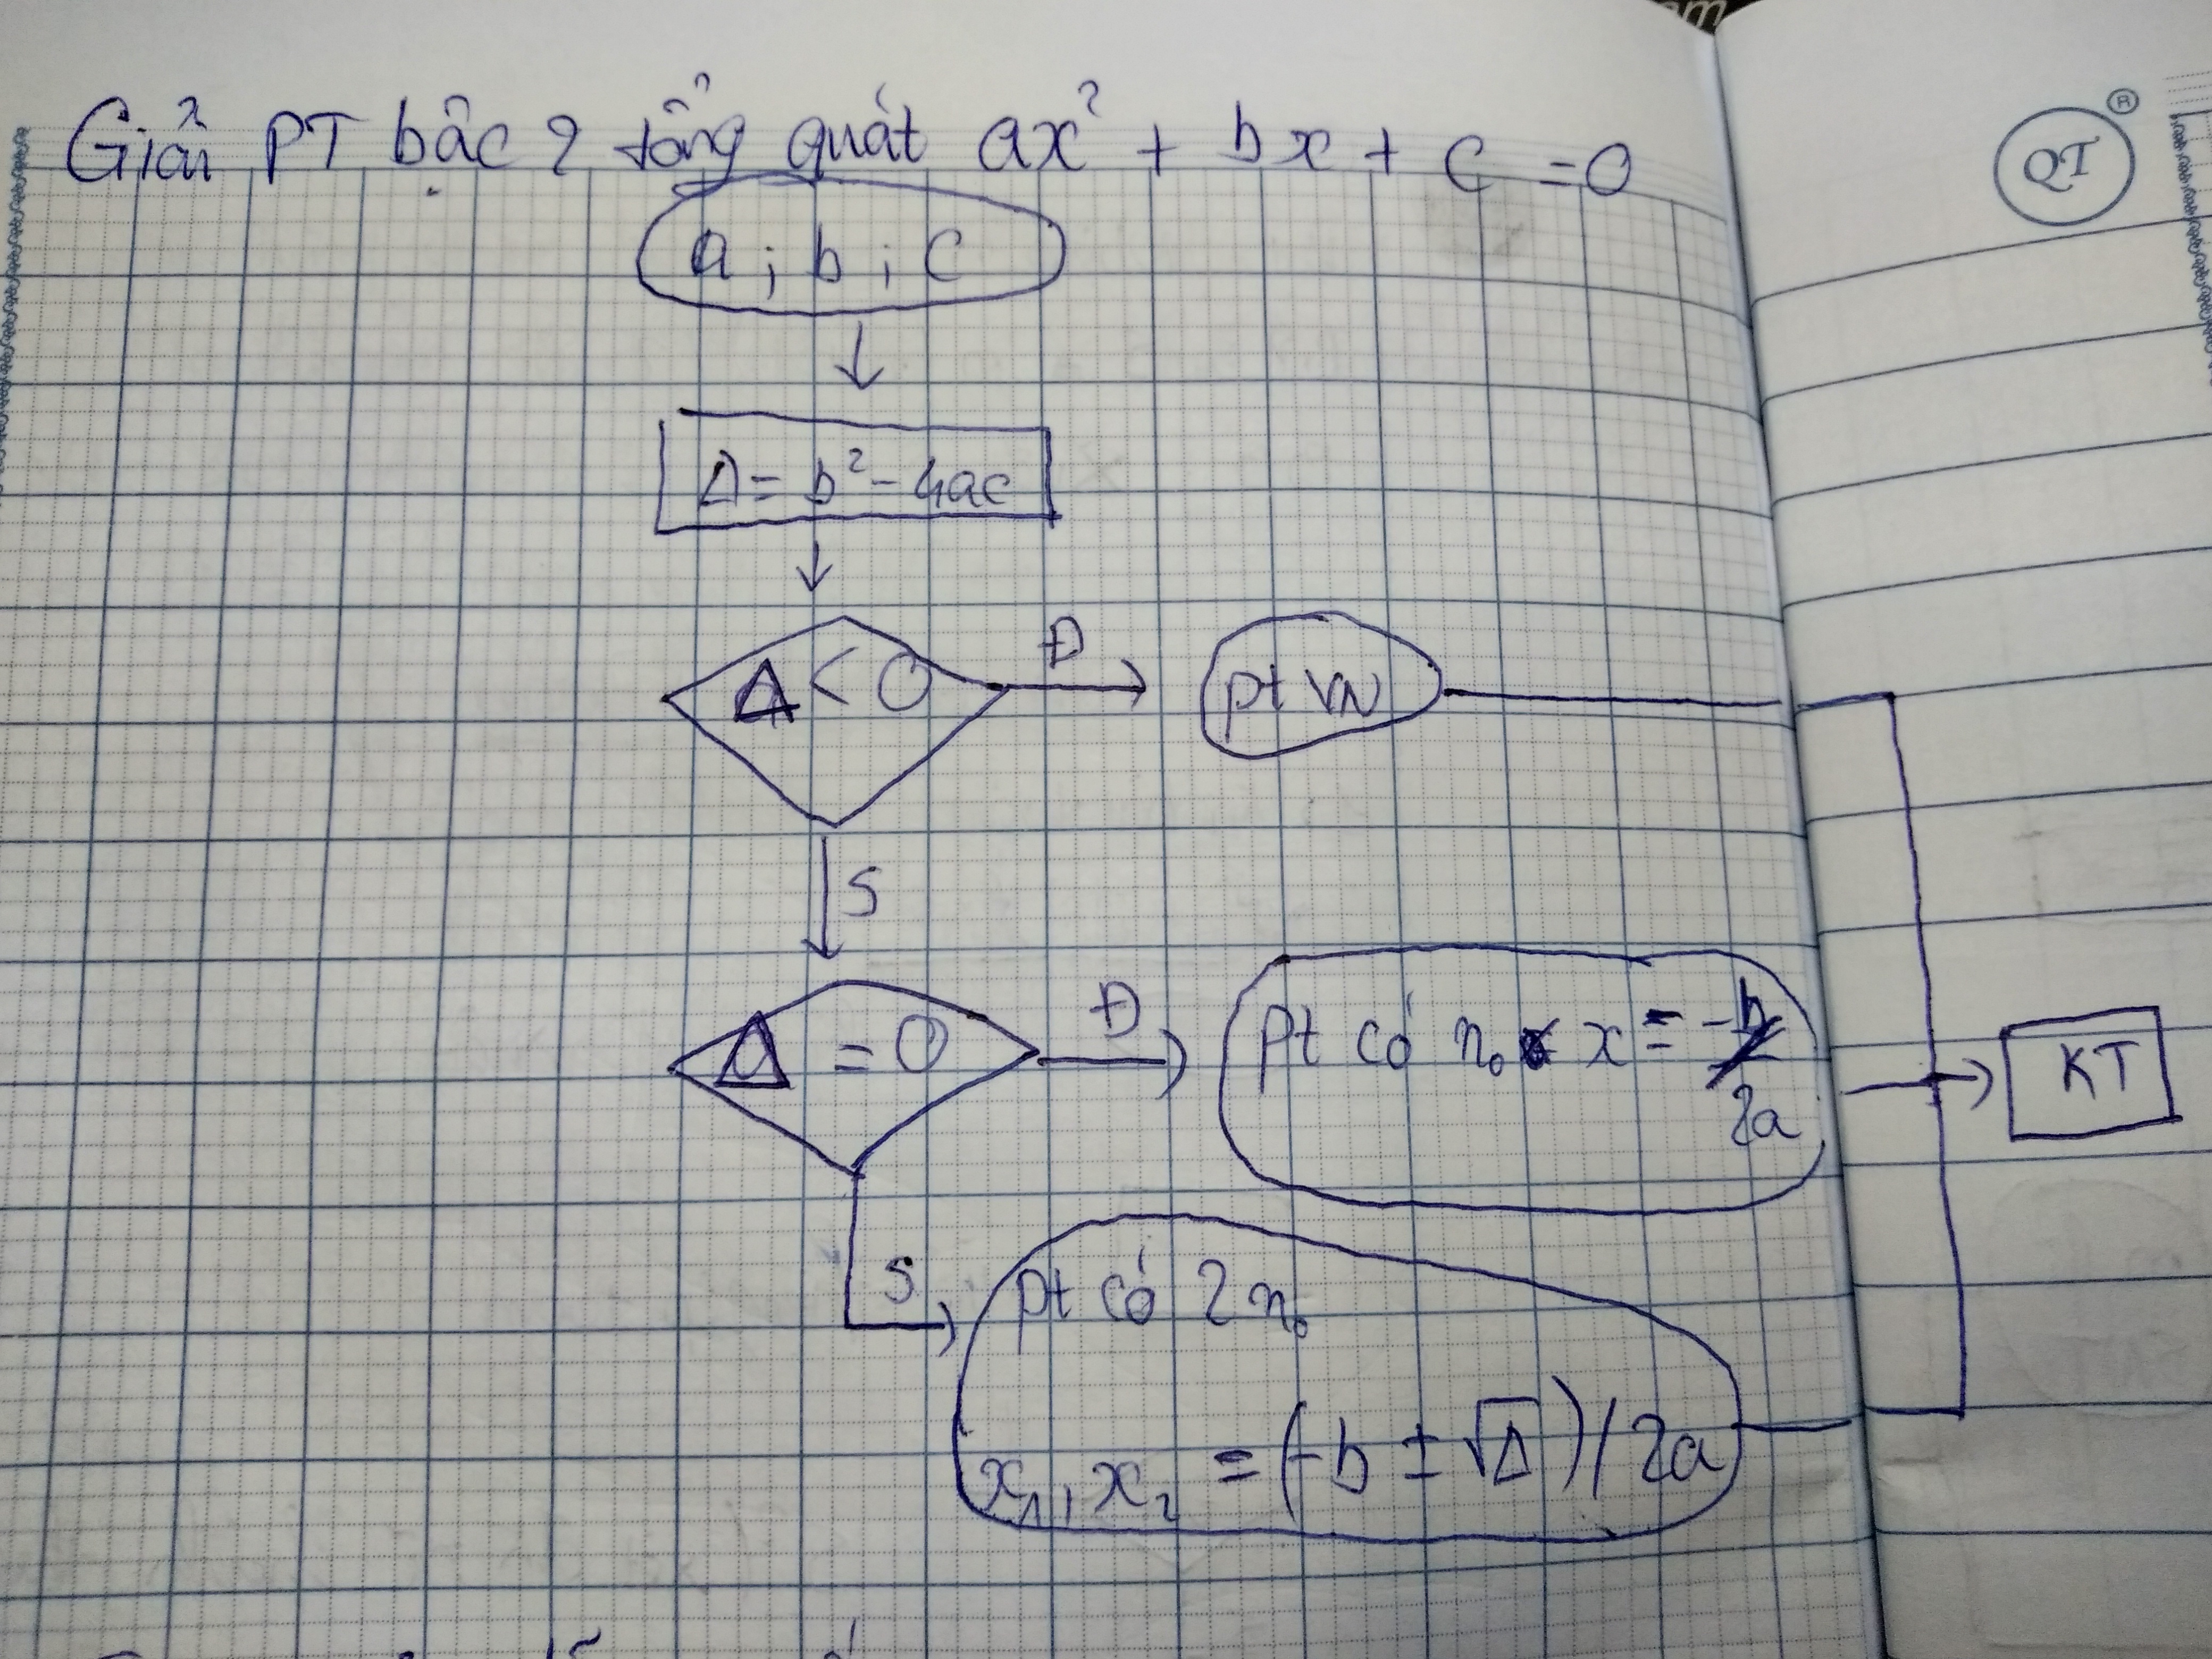 Giải PT bậc 2 tổng quát ax² + bx + c = 0
QT ®
a ; b ; c
Δ = b² - 4ac
Δ < 0
Đ
pt VN
S
Δ = 0
Đ
pt có n₀ x = -b
2a
KT
S
pt có 2 n₀
x₁, x₂ = (-b ± √Δ) / 2a